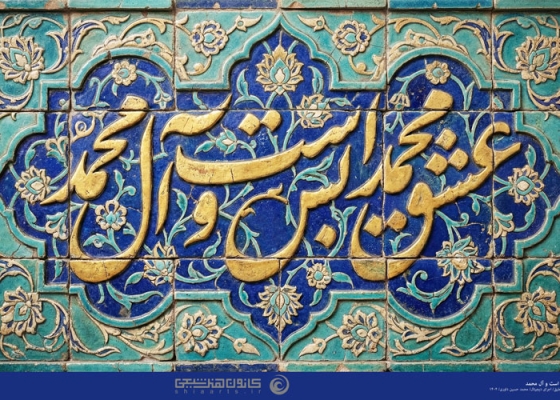 عشق محمد بس است و آل محمد
است و آل محمد
کانون هنر شیعی